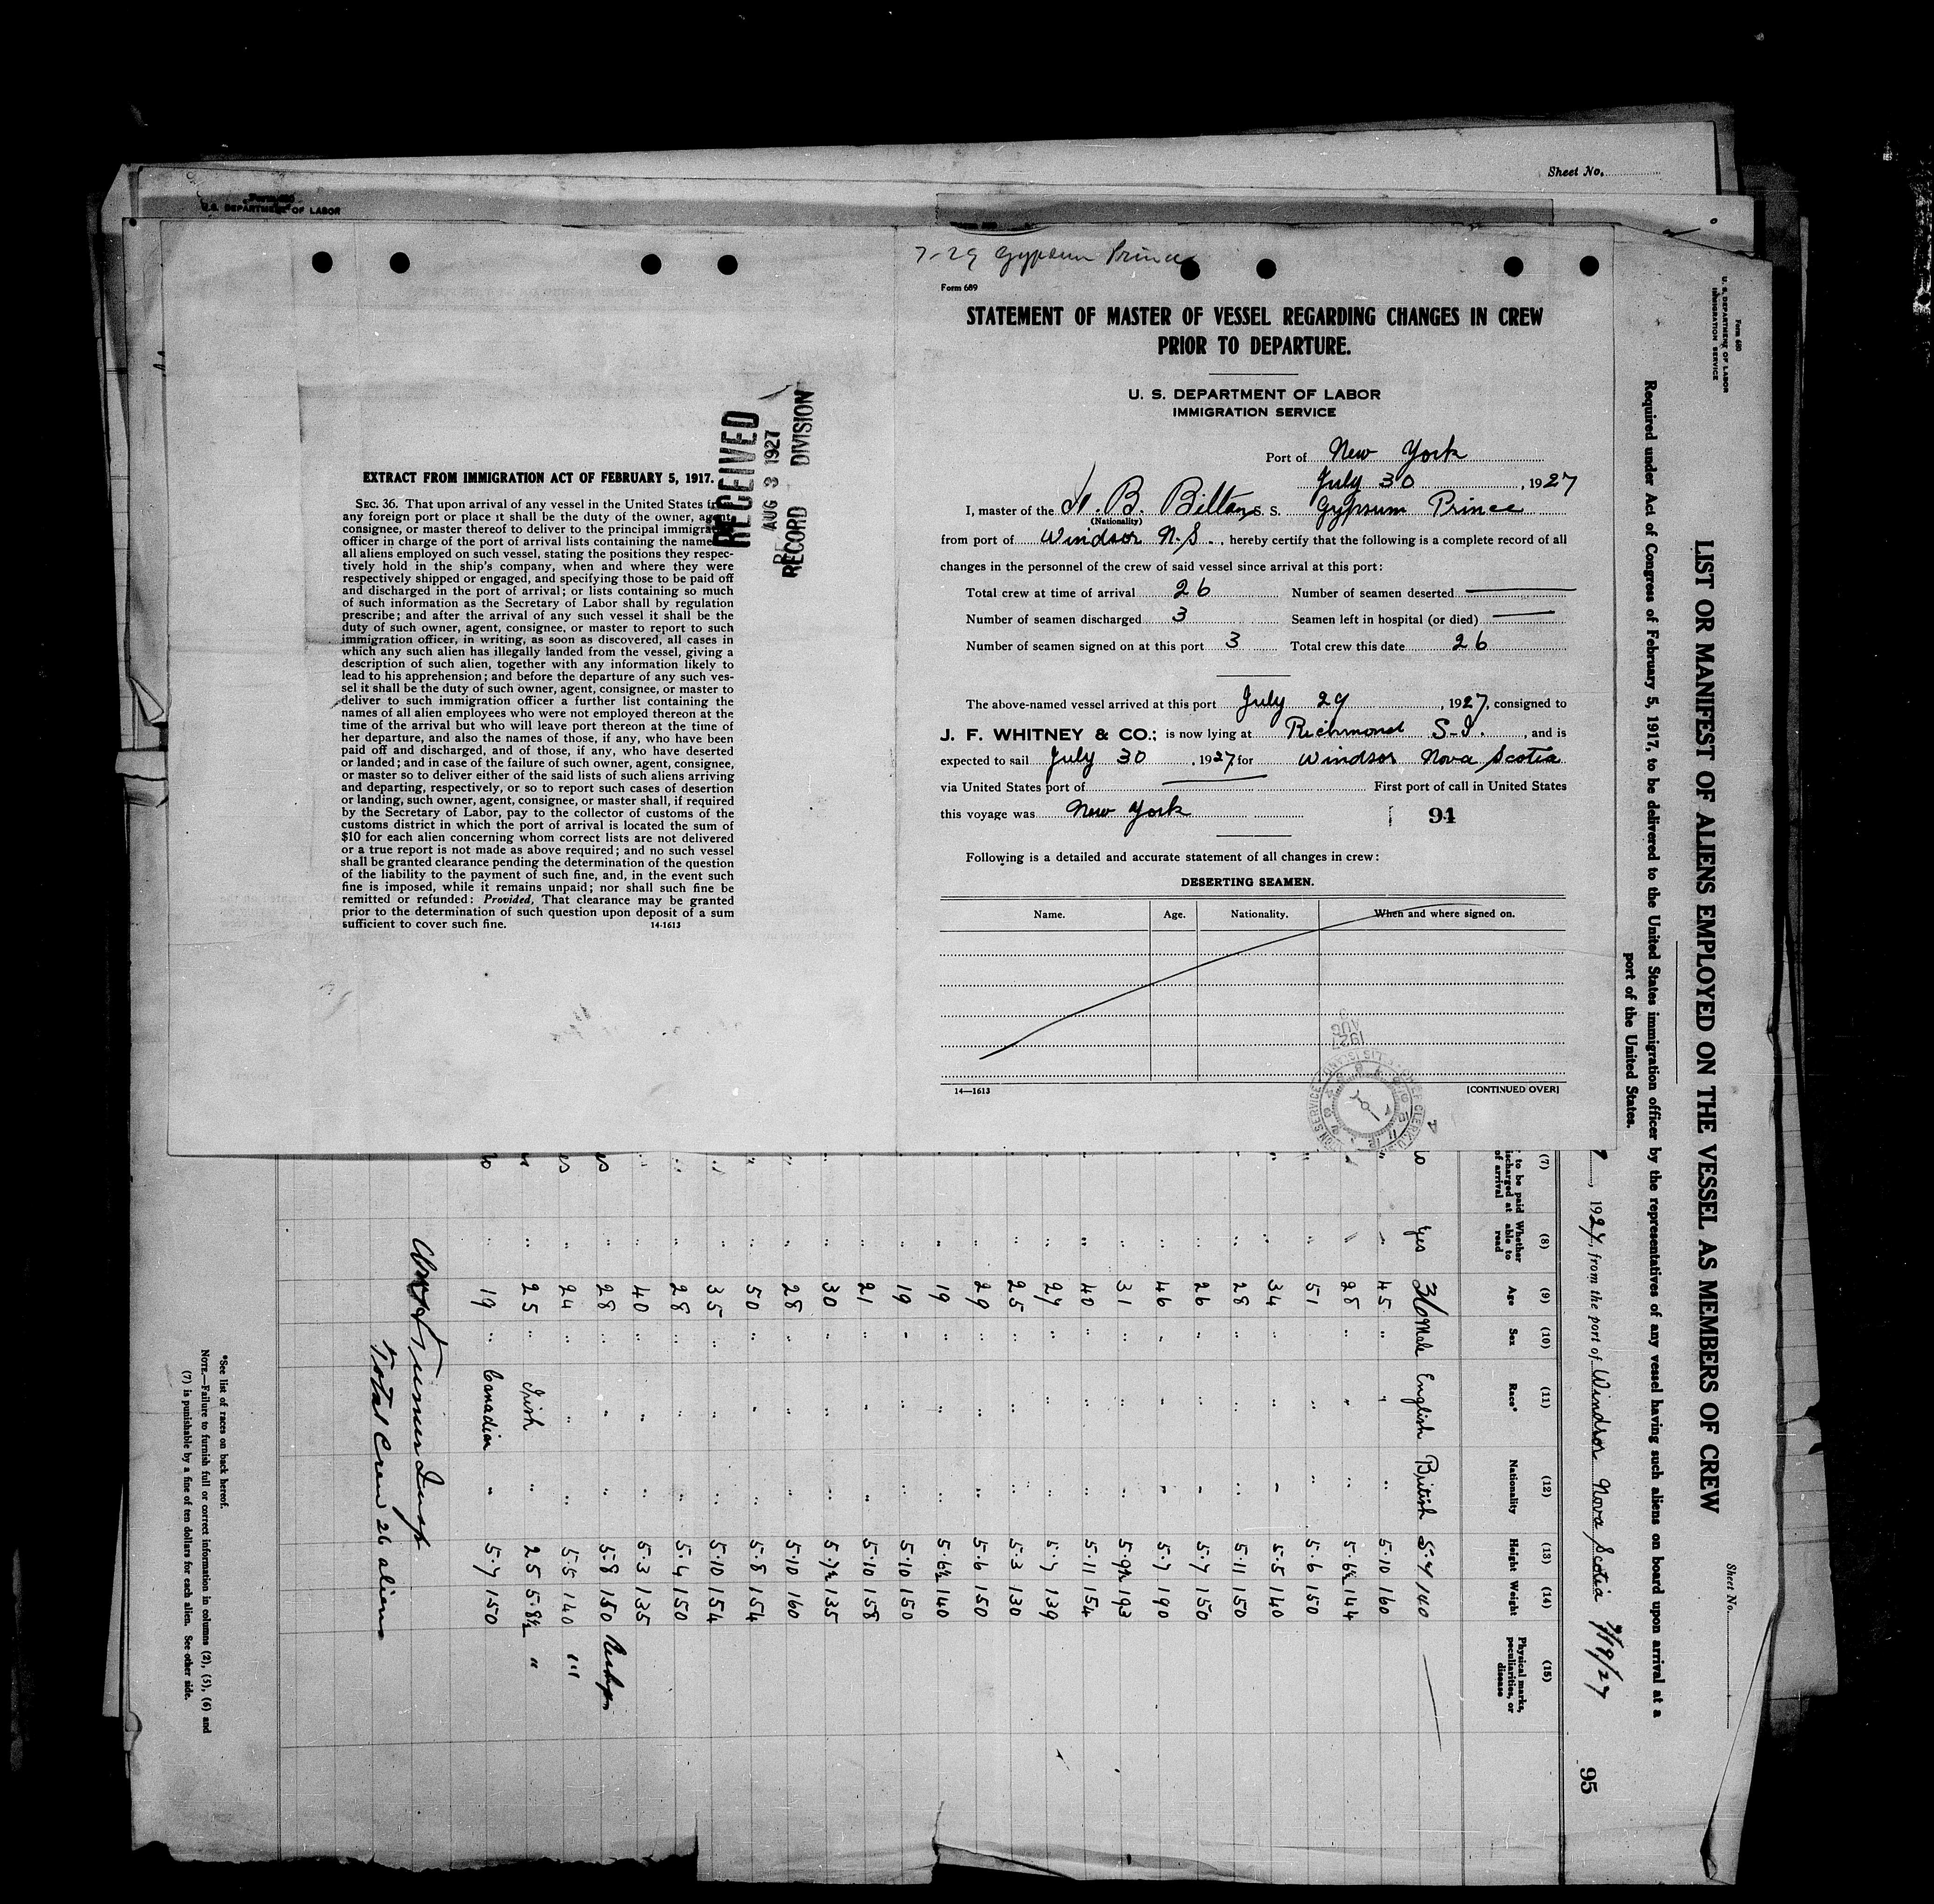 Sheet No.
Form 680
U. S. DEPARTMENT OF LABOR
7-29 Gypsum Prince
Form 689
STATEMENT OF MASTER OF VESSEL REGARDING CHANGES IN CREW
PRIOR TO DEPARTURE.
U. S. DEPARTMENT OF LABOR
IMMIGRATION SERVICE
Port of New York
July 30, 1927
I, master of the H. B. Bilton S. S. Gypsum Prince
(Nationality)
from port of Windsor N.S., hereby certify that the following is a complete record of all
changes in the personnel of the crew of said vessel since arrival at this port:
Total crew at time of arrival 26 Number of seamen deserted
Number of seamen discharged 3 Seamen left in hospital (or died)
Number of seamen signed on at this port 3 Total crew this date 26
The above-named vessel arrived at this port July 29, 1927, consigned to
J. F. WHITNEY & CO.; is now lying at Richmond S-I., and is
expected to sail July 30, 1927 for Windsor Nova Scotia
via United States port of First port of call in United States
this voyage was New York
94
Following is a detailed and accurate statement of all changes in crew:
DESERTING SEAMEN.
Name. Age. Nationality. When and where signed on.
14—1613 [CONTINUED OVER]
RECEIVED
AUG 3 1927
RECORD DIVISION
EXTRACT FROM IMMIGRATION ACT OF FEBRUARY 5, 1917.
SEC. 36. That upon arrival of any vessel in the United States from
any foreign port or place it shall be the duty of the owner, agent,
consignee, or master thereof to deliver to the principal immigration
officer in charge of the port of arrival lists containing the names of
all aliens employed on such vessel, stating the positions they respec-
tively hold in the ship's company, when and where they were
respectively shipped or engaged, and specifying those to be paid off
and discharged in the port of arrival; or lists containing so much
of such information as the Secretary of Labor shall by regulation
prescribe; and after the arrival of any such vessel it shall be the
duty of such owner, agent, consignee, or master to report to such
immigration officer, in writing, as soon as discovered, all cases in
which any such alien has illegally landed from the vessel, giving a
description of such alien, together with any information likely to
lead to his apprehension; and before the departure of any such ves-
sel it shall be the duty of such owner, agent, consignee, or master to
deliver to such immigration officer a further list containing the
names of all alien employees who were not employed thereon at the
time of the arrival but who will leave port thereon at the time of
her departure, and also the names of those, if any, who have been
paid off and discharged, and of those, if any, who have deserted
or landed; and in case of the failure of such owner, agent, consignee,
or master so to deliver either of the said lists of such aliens arriving
and departing, respectively, or so to report such cases of desertion
or landing, such owner, agent, consignee, or master shall, if required
by the Secretary of Labor, pay to the collector of customs of the
customs district in which the port of arrival is located the sum of
$10 for each alien concerning whom correct lists are not delivered
or a true report is not made as above required; and no such vessel
shall be granted clearance pending the determination of the question
of the liability to the payment of such fine, and, in the event such
fine is imposed, while it remains unpaid; nor shall such fine be
remitted or refunded: Provided, That clearance may be granted
prior to the determination of such question upon deposit of a sum
sufficient to cover such fine. 14-1613
Form 680
U. S. DEPARTMENT OF LABOR
IMMIGRATION SERVICE
Sheet No.
LIST OR MANIFEST OF ALIENS EMPLOYED ON THE VESSEL AS MEMBERS OF CREW
Required under Act of Congress of February 5, 1917, to be delivered to the United States immigration officer by the representatives of any vessel having such aliens on board upon arrival at a
port of the United States.
, 1927, from the port of Windsor Nova Scotia
95
(7) (8) (9) (10) (11) (12) (13) (14) (15)
to be paid
at
of arrival
Whether able to read
Age Sex Race* Nationality Height Weight
Physical marks, peculiarities, or disease
Yes 36 Male English British 5·4 140
" 45 " " " 5·10 160
" 28 " " " 5·6½ 144
" 51 " " " 5·6 150
" 34 " " " 5·5 140
" 28 " " " 5·11 150
" 26 " " " 5·7 150
" 46 " " " 5·7 190
" 31 " " " 5·9½ 193
" 40 " " " 5·11 154
" 27 " " " 5·7 139
" 25 " " " 5·3 130
" 29 " " " 5·6 150
" 19 " " " 5·6½ 140
" 19 " " " 5·10 150
" 21 " " " 5·10 158
" 30 " " " 5·7½ 135
" 28 " " " 5·10 160
" 50 " " " 5·8 154
" 35 " " " 5·10 154
" 28 " " " 5·4 150
" 40 " " " 5·3 135
" 28 " " " 5·8 150
" 24 " " " 5·5 140
" 25 " Irish " 25 5·8½ "
" 19 " Canadian " 5·7 150
Total Crew 26 aliens
*See list of races on back hereof.
NOTE.—Failure to furnish full or correct information in columns (2), (5), (6) and
(7) is punishable by a fine of ten dollars for each alien. See other side.